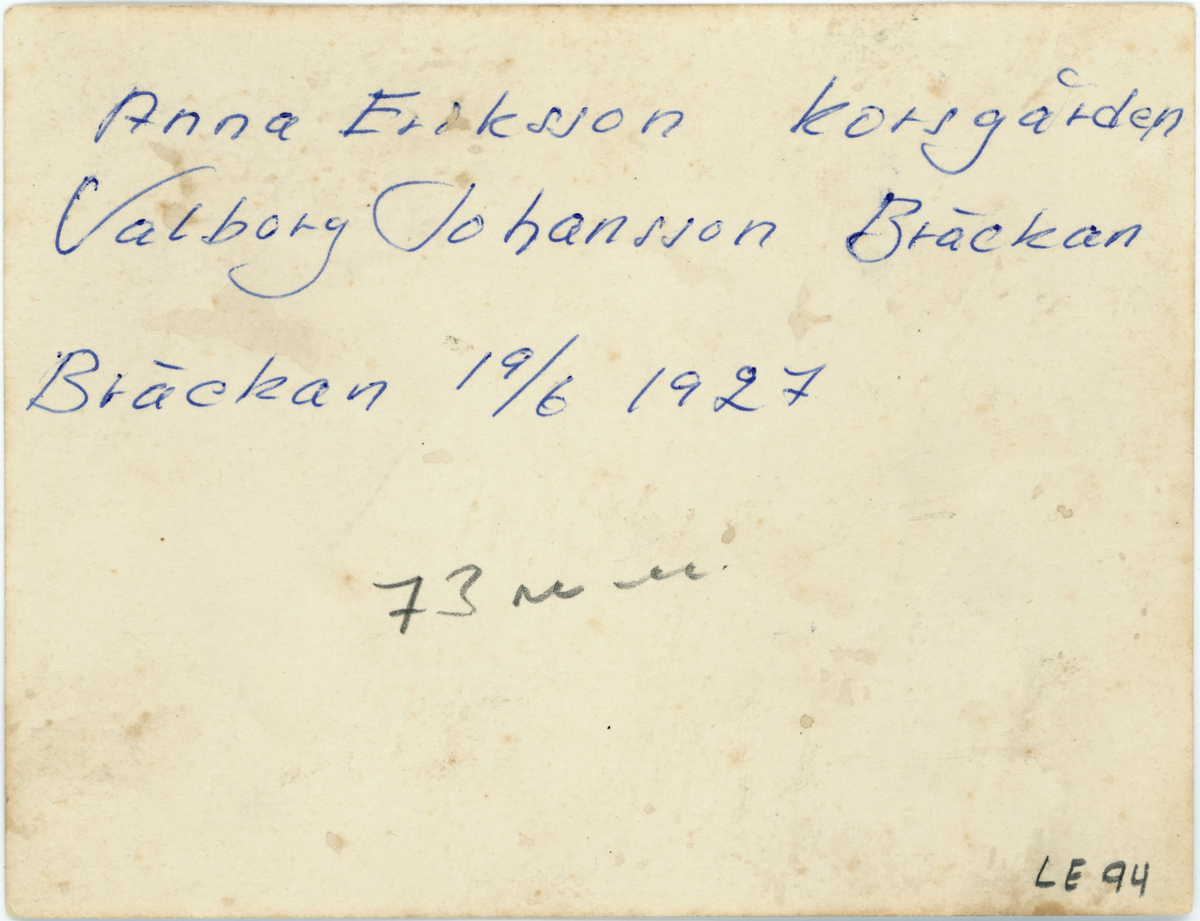 Anna Eriksson Korsgården
Valborg Johansson Bräckan
Bräckan 19/6 1927
73 m m.
LE 94